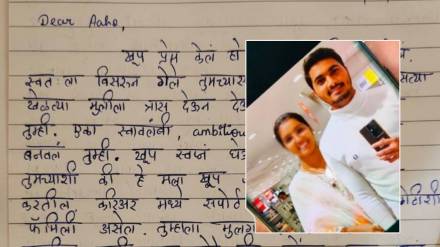 Dear Aaho,
खूप प्रेम केलं हो
स्वतःला विसरुन गेले तुमच्यास
खेळत्या मुलीला त्रास देऊन दे
तुम्ही. एका स्वावलंबी, ambitiou
बनवलं तुम्ही. खूप स्वप्नं घे
तुमच्याशी की हे मला खूप
करतील करिअर मध्ये सपोर्ट
फॅमिली असेल. तुम्हाला मुलग